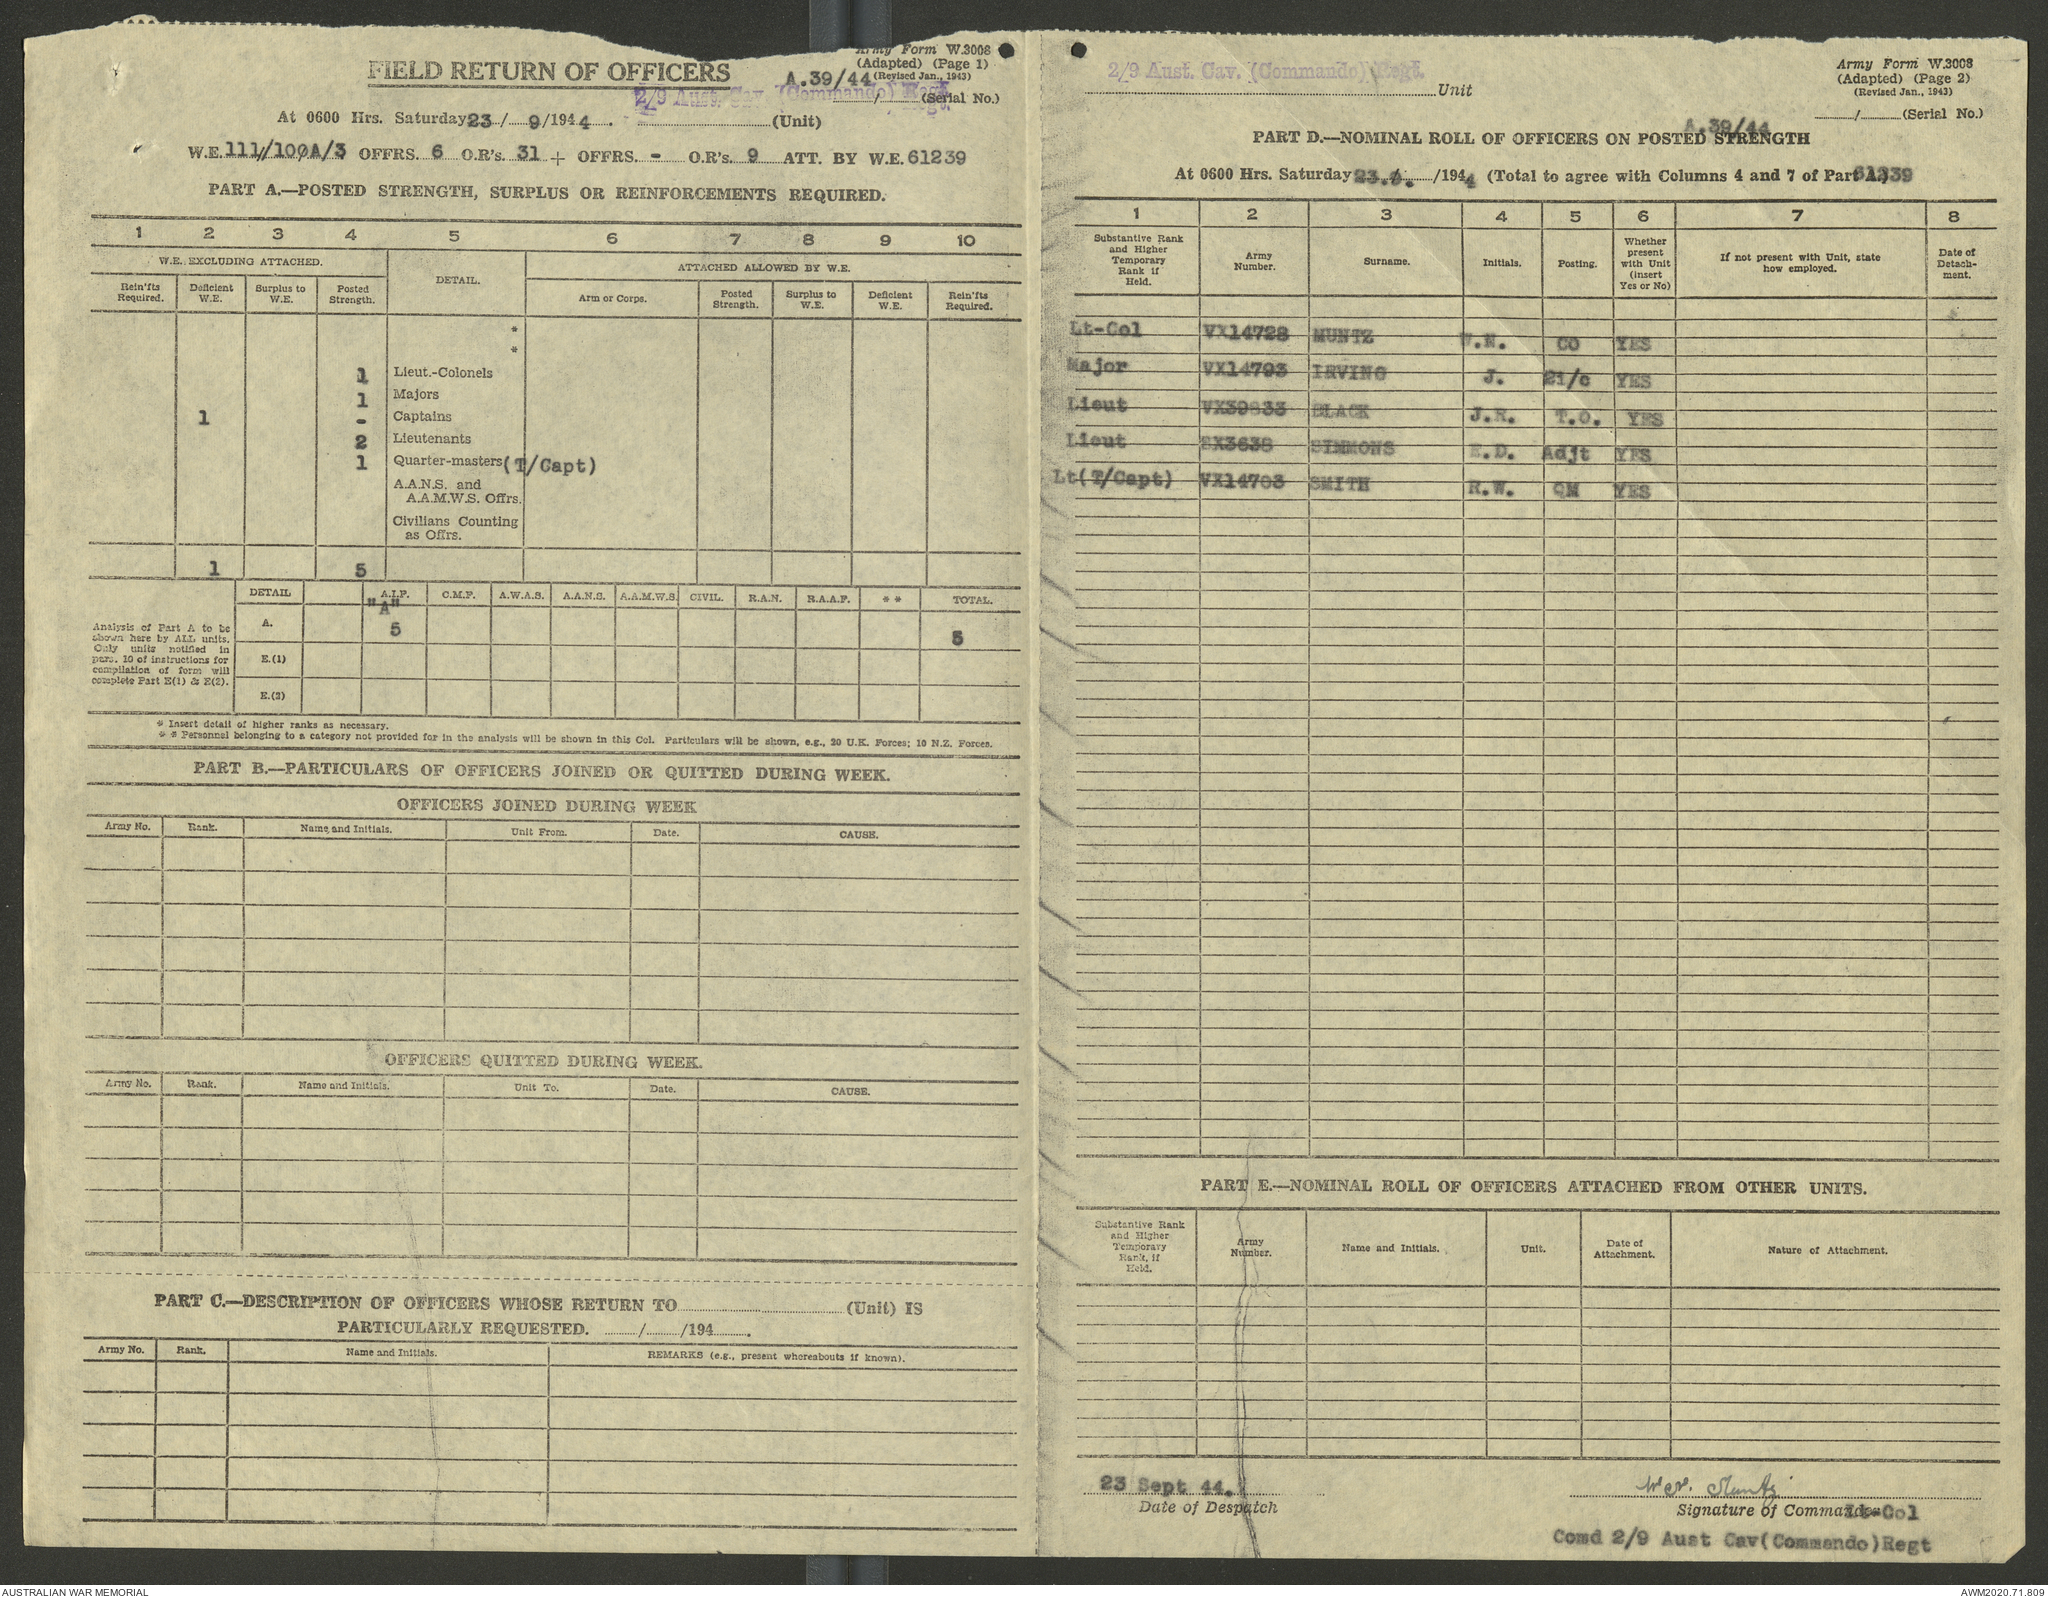 Army Form W.3008
(Adapted) (Page 1)
(Revised Jan., 1943)
FIELD RETURN OF OFFICERS
A.39/44
2/9 Aust. Cav. (Commando) Regt.
....../...... (Serial No.)
At 0600 Hrs. Saturday 23/ 9/1944. (Unit)
W.E. 111/100A/3 OFFRS. 6 O.R's. 31 + OFFRS. - O.R's. 9 ATT. BY W.E. 61239
PART A.—POSTED STRENGTH, SURPLUS OR REINFORCEMENTS REQUIRED.
1 2 3 4 5 6 7 8 9 10
W.E. EXCLUDING ATTACHED. DETAIL. ATTACHED ALLOWED BY W.E.
Rein'fts Required. Deficient W.E. Surplus to W.E. Posted Strength. Arm or Corps. Posted Strength. Surplus to W.E. Deficient W.E. Rein'fts Required.
*
*
1 Lieut.-Colonels
1 Majors
1 - Captains
2 Lieutenants
1 Quarter-masters (T/Capt)
A.A.N.S. and
A.A.M.W.S. Offrs.
Civilians Counting
as Offrs.
1 5
DETAIL A.I.F. C.M.F. A.W.A.S. A.A.N.S. A.A.M.W.S. CIVIL. R.A.N. R.A.A.F. * * TOTAL.
"A"
A. 5 5
E.(1)
E.(2)
Analysis of Part A to be
shown here by ALL units.
Only units notified in
para. 10 of instructions for
compilation of form will
complete Part E(1) & E(2).
* Insert detail of higher ranks as necessary.
* * Personnel belonging to a category not provided for in the analysis will be shown in this Col. Particulars will be shown, e.g., 20 U.K. Forces; 10 N.Z. Forces.
PART B.—PARTICULARS OF OFFICERS JOINED OR QUITTED DURING WEEK.
OFFICERS JOINED DURING WEEK
Army No. Rank. Name and Initials. Unit From. Date. CAUSE.
OFFICERS QUITTED DURING WEEK.
Army No. Rank. Name and Initials. Unit To. Date. CAUSE.
PART C.—DESCRIPTION OF OFFICERS WHOSE RETURN TO (Unit) IS
PARTICULARLY REQUESTED. ....../....../194......
Army No. Rank. Name and Initials. REMARKS (e.g., present whereabouts if known).
2/9 Aust. Cav. (Commando) Regt.
Unit
Army Form W.3008
(Adapted) (Page 2)
(Revised Jan., 1943)
....../...... (Serial No.)
A.39/44
PART D.—NOMINAL ROLL OF OFFICERS ON POSTED STRENGTH
At 0600 Hrs. Saturday 23.9. /1944 (Total to agree with Columns 4 and 7 of Part A.) 61239
1 2 3 4 5 6 7 8
Substantive Rank and Higher Temporary Rank if Held. Army Number. Surname. Initials. Posting. Whether present with Unit (insert Yes or No) If not present with Unit, state how employed. Date of Detachment.
Lt-Col VX14728 MUNTZ W.N. CO YES
Major VX14793 IRVING J. 2i/c YES
Lieut VX39833 BLACK J.R. T.O. YES
Lieut SX3638 SIMMONS E.D. Adjt YES
Lt(T/Capt) VX14703 SMITH R.W. QM YES
PART E.—NOMINAL ROLL OF OFFICERS ATTACHED FROM OTHER UNITS.
Substantive Rank and Higher Temporary Rank, if Held. Army Number. Name and Initials. Unit. Date of Attachment. Nature of Attachment.
23 Sept 44.
Date of Despatch
W.N. Muntz
Signature of Commander Lt-Col
Comd 2/9 Aust Cav(Commando)Regt
AUSTRALIAN WAR MEMORIAL
AWM2020.71.809